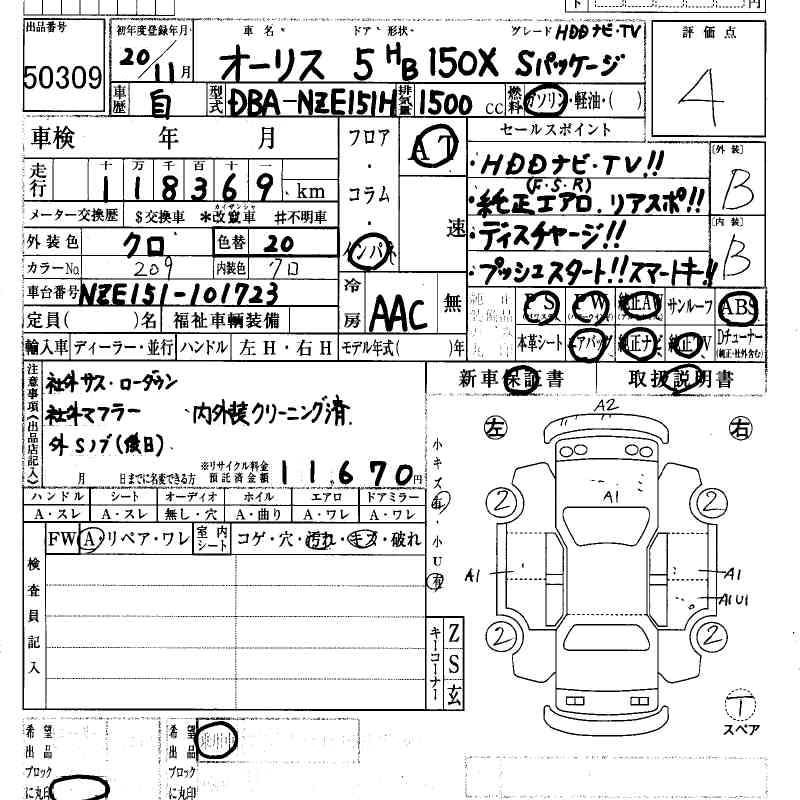 出品番号
50309
初年度登録年月 車名 ドア・形状 グレード HDDナビ・TV
20/11月 オーリス 5HB 150X Sパッケージ
車歴 自 型式 DBA-NZE151H 排気量 1500CC 燃料 ガソリン・軽油・( )
評価点
4
車検 年 月
走行 十 万 千 百 十 一
118369 km
メーター交換歴 $交換車 *改竄車 #不明車
カイザンシャ
外装色 クロ 色替 20
カラーNo. 209 内装色 クロ
車台番号 NZE151-101723
定員( )名 福祉車輌装備
輸入車 ディーラー・並行 ハンドル 左H・右H モデル年式( )年
フロア・コラム・インパネ
AT
速
冷房 AAC 無
セールスポイント
・HDDナビ・TV!!
(F.S.R)
・純正エアロ、リアスポ!!
・ディスチャージ!!
・プッシュスタート!!スマートキー!!
[外装]
B
[内装]
B
純正装備品 PS PW 純正AW サンルーフ ABS
本革シート エアバッグ 純正ナビ 純正TV Dチューナー
(純正・社外含む)
新車保証書 取扱説明書
注意事項(出品店記入)
社外サス・ローダウン
社外マフラー 内外装クリーニング済
外Sノブ(後日)
月 日までに名変できる方 ※リサイクル料金預託済金額 11,670円
ハンドル シート オーディオ ホイル エアロ ドアミラー
A・スレ A・スレ 無し・穴 A・曲り A・ワレ A・ワレ
FW A・リペア・ワレ 室内シート コゲ・穴・汚れ・キズ・破れ
検査員記入
小キズ有・小U有
キーコーナー Z S 玄
左 A2 右
2 A1 2
A1 A1
A1U1
2 2
1
スペア
希望出品ブロックに丸印
希望出品ブロックに丸印